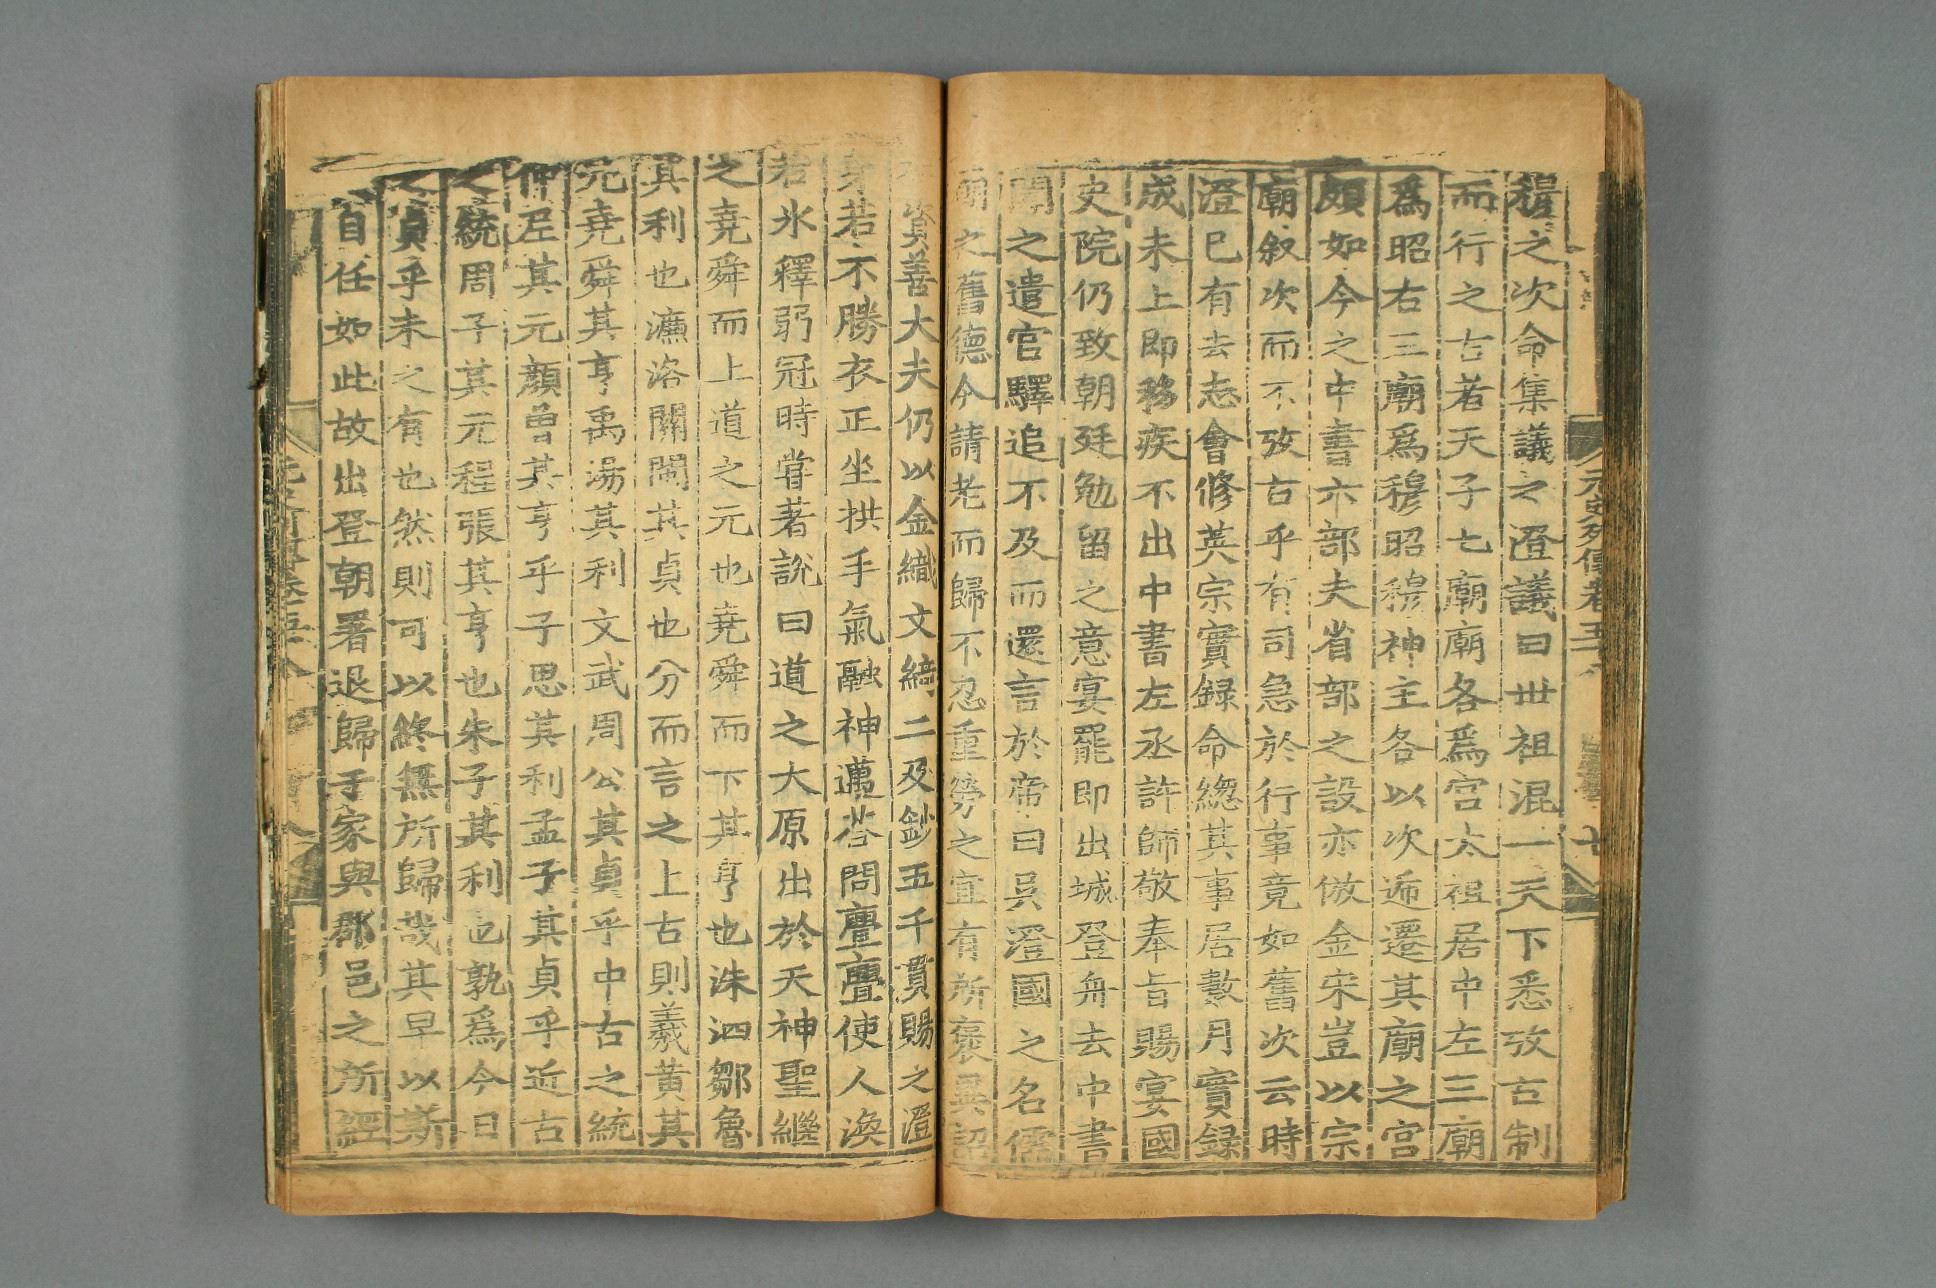 元史列傳卷五十八
穆之次命集議之澄議曰世祖混一天下悉攷古制
而行之古者天子七廟廟各爲宮太祖居中左三廟
爲昭右三廟爲穆昭穆神主各以次逓遷其廟之宮
頗如今之中書六部夫省部之設亦倣金宋豈以宗
廟叙次而不攷古乎有司急於行事竟如舊次云時
澄已有去志會修英宗實録命緫其事居數月實録
成未上即移疾不出中書左丞許師敬奉旨賜宴國
史院仍致朝廷勉留之意宴罷即出城登舟去中書
聞之遣官驛追不及而還言於帝曰吳澄國之名儒
朝之舊德今請老而歸不忍重勞之宜有所褒異詔
資善大夫仍以金織文綺二及鈔五千貫賜之澄
身若不勝衣正坐拱手氣融神邁答問亹亹使人渙
若氷釋弱冠時嘗著說曰道之大原出於天神聖繼
之堯舜而上道之元也堯舜而下其亨也洙泗鄒魯
其利也濂洛關閩其貞也分而言之上古則羲黄其
元堯舜其亨禹湯其利文武周公其貞乎中古之統
仲尼其元顏曾其亨乎子思其利孟子其貞乎近古
之統周子其元程張其亨也朱子其利也孰爲今日
之貞乎未之有也然則可以終無所歸哉其早以斯
自任如此故出登朝署退歸于家與郡邑之所經